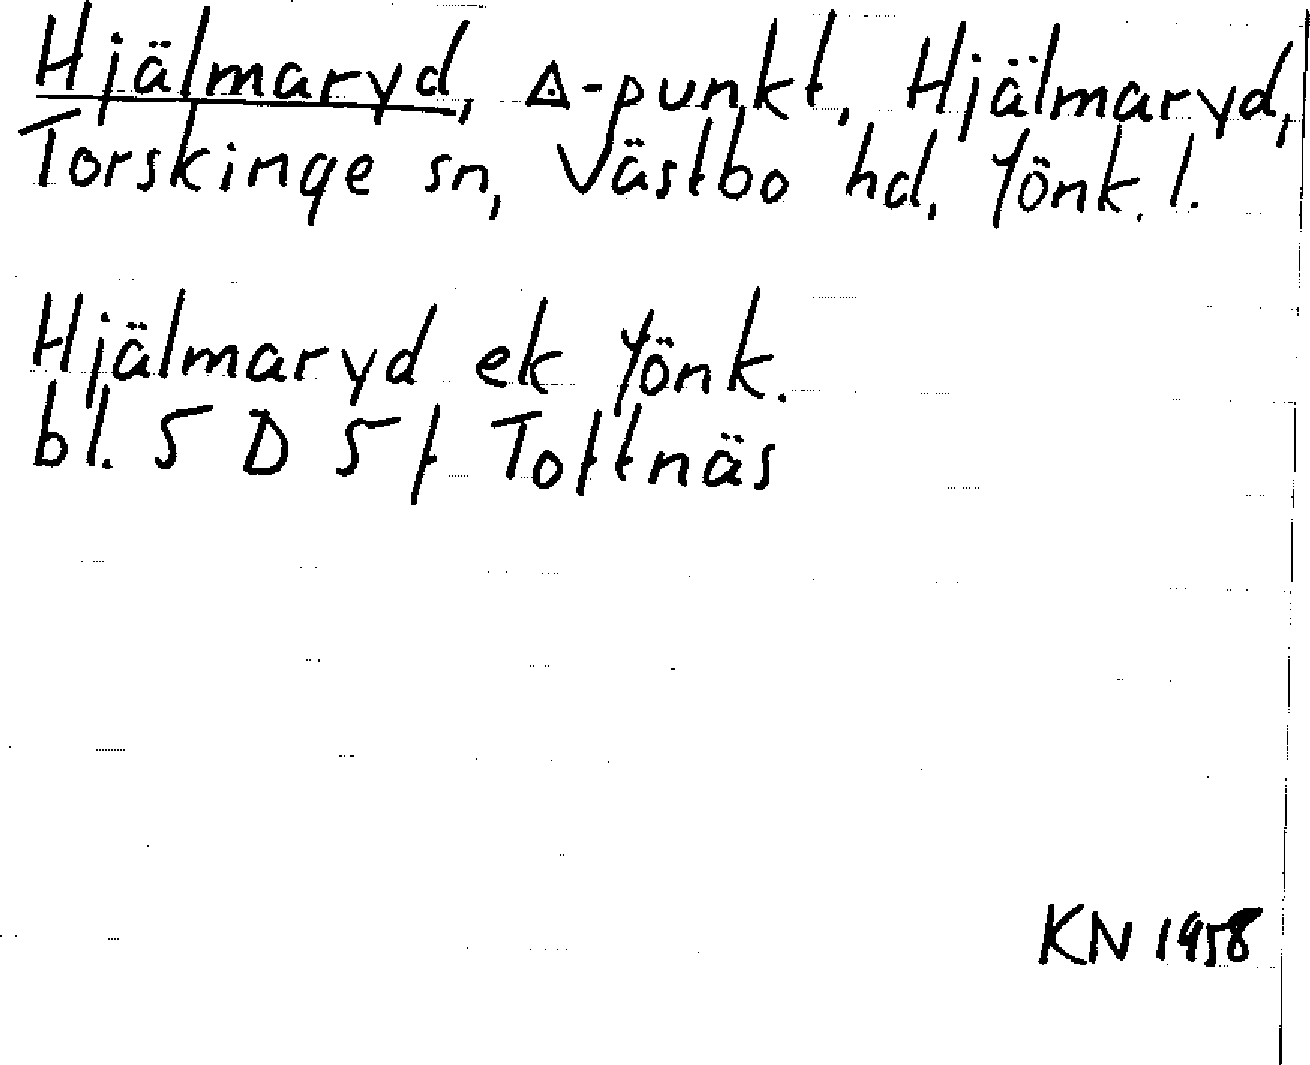 Hjälmaryd, △-punkt, Hjälmaryd,
Torskinge sn, Västbo hd, Jönk. l.
Hjälmaryd ek Jönk.
bl. 5 D 5 f Toftnäs
KN 1958